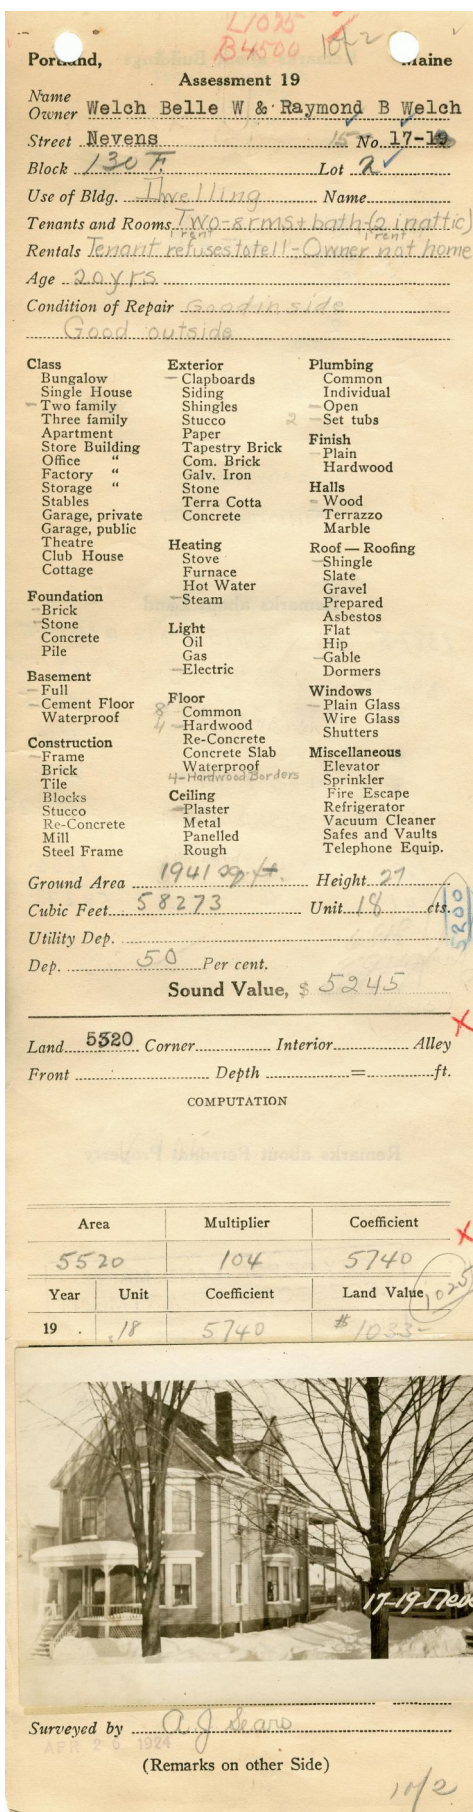 L1025
B4500 1 of 2
Portland, Maine
Assessment 19
Name
Owner Welch Belle W & Raymond B Welch
Street Nevens 15 No. 17-19
Block 130 F. Lot 2
Use of Bldg. Dwelling Name
Tenants and Rooms Two-8rms+bath-(2 in attic)
1 rent 1 rent
Rentals Tenant refuses to tell-Owner not home
Age 20yrs
Condition of Repair Good inside
Good outside
Class
Bungalow
Single House
- Two family
Three family
Apartment
Store Building
Office "
Factory "
Storage "
Stables
Garage, private
Garage, public
Theatre
Club House
Cottage
Foundation
- Brick
- Stone
Concrete
Pile
Basement
- Full
- Cement Floor
Waterproof
Construction
- Frame
Brick
Tile
Blocks
Stucco
Re-Concrete
Mill
Steel Frame
Exterior
- Clapboards
Siding
Shingles
Stucco
Paper
Tapestry Brick
Com. Brick
Galv. Iron
Stone
Terra Cotta
Concrete
Heating
Stove
Furnace
Hot Water
- Steam
Light
Oil
Gas
- Electric
Floor
8 - Common
4 - Hardwood
Re-Concrete
Concrete Slab
Waterproof
4-Hardwood Borders
Ceiling
- Plaster
Metal
Panelled
Rough
Plumbing
Common
Individual
- Open
2 - Set tubs
Finish
- Plain
Hardwood
Halls
- Wood
Terrazzo
Marble
Roof — Roofing
- Shingle
Slate
Gravel
Prepared
Asbestos
Flat
Hip
- Gable
Dormers
Windows
- Plain Glass
Wire Glass
Shutters
Miscellaneous
Elevator
Sprinkler
Fire Escape
Refrigerator
Vacuum Cleaner
Safes and Vaults
Telephone Equip.
Ground Area 1941 sq. ft. Height 27
Cubic Feet 58273 Unit 18 cts.
5200
Utility Dep.
Dep. 50 Per cent.
Sound Value, $ 5245
Land 5520 Corner Interior Alley
Front Depth = ft.
COMPUTATION
Area Multiplier Coefficient
5520 104 5740
Year Unit Coefficient Land Value
1025
19 .18 5740 $1033-
17-19 Neve
Surveyed by A J Sears
APR 26 1924
(Remarks on other Side)
1 of 2